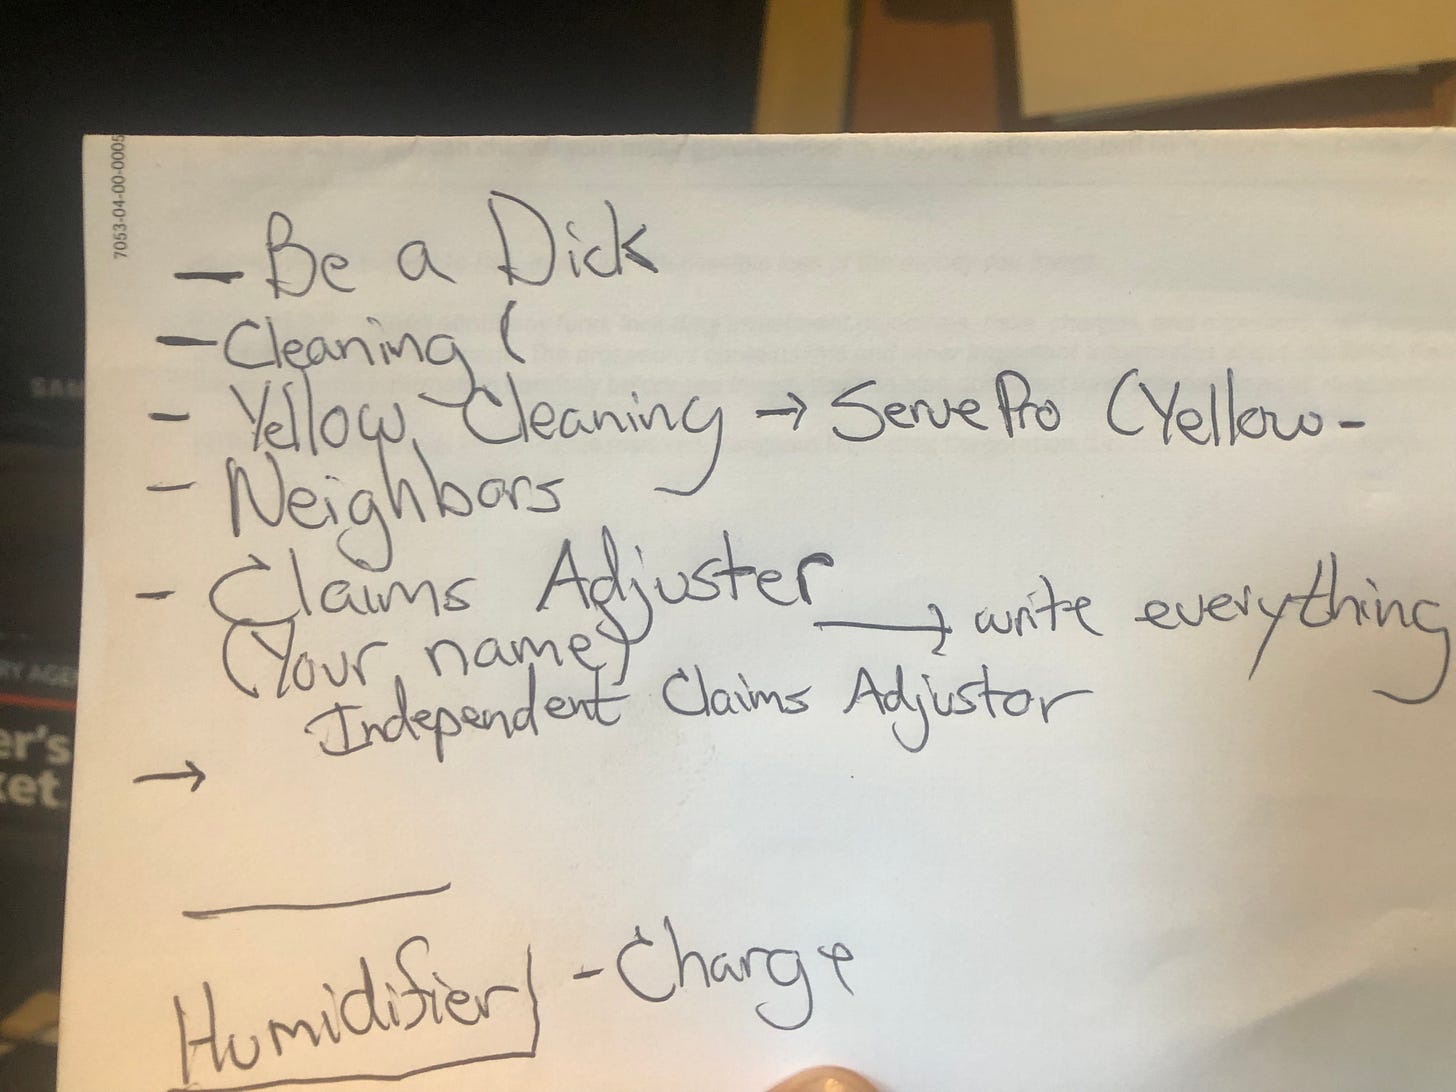 7053-04-00-0005
- Be a Dick
- Cleaning (
- Yellow Cleaning → ServePro (Yellow -
- Neighbors
- Claims Adjuster → write everything
(Your name)
Independent Claims Adjustor
→
Humidifier - Charge
SAM
er's
ket